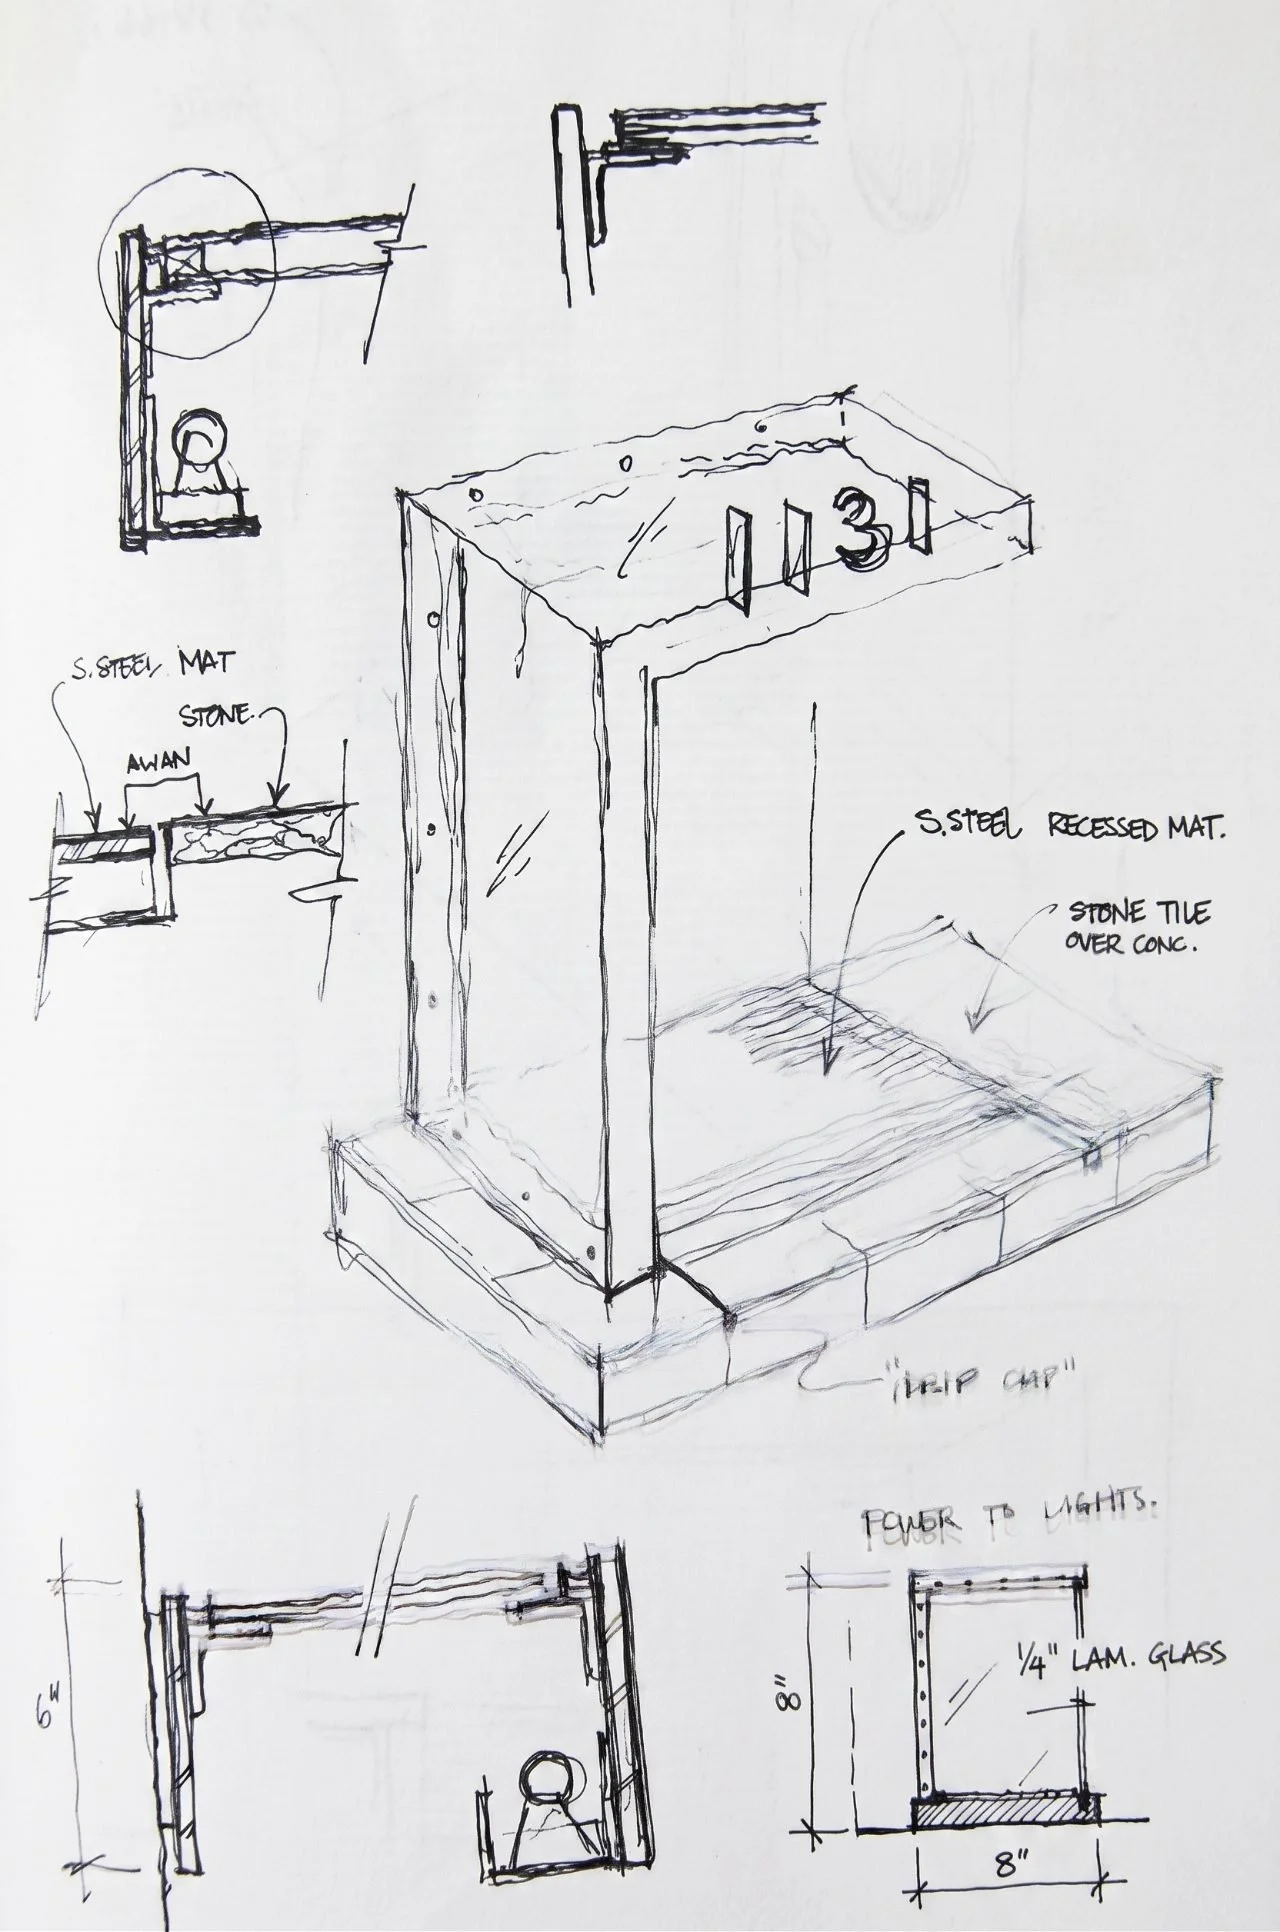 1131
S.STEEL MAT
STONE
AWAN
S.STEEL RECESSED MAT.
STONE TILE
OVER CONC.
"DRIP CAP"
POWER TO LIGHTS.
6"
8"
1/4" LAM. GLASS
8"